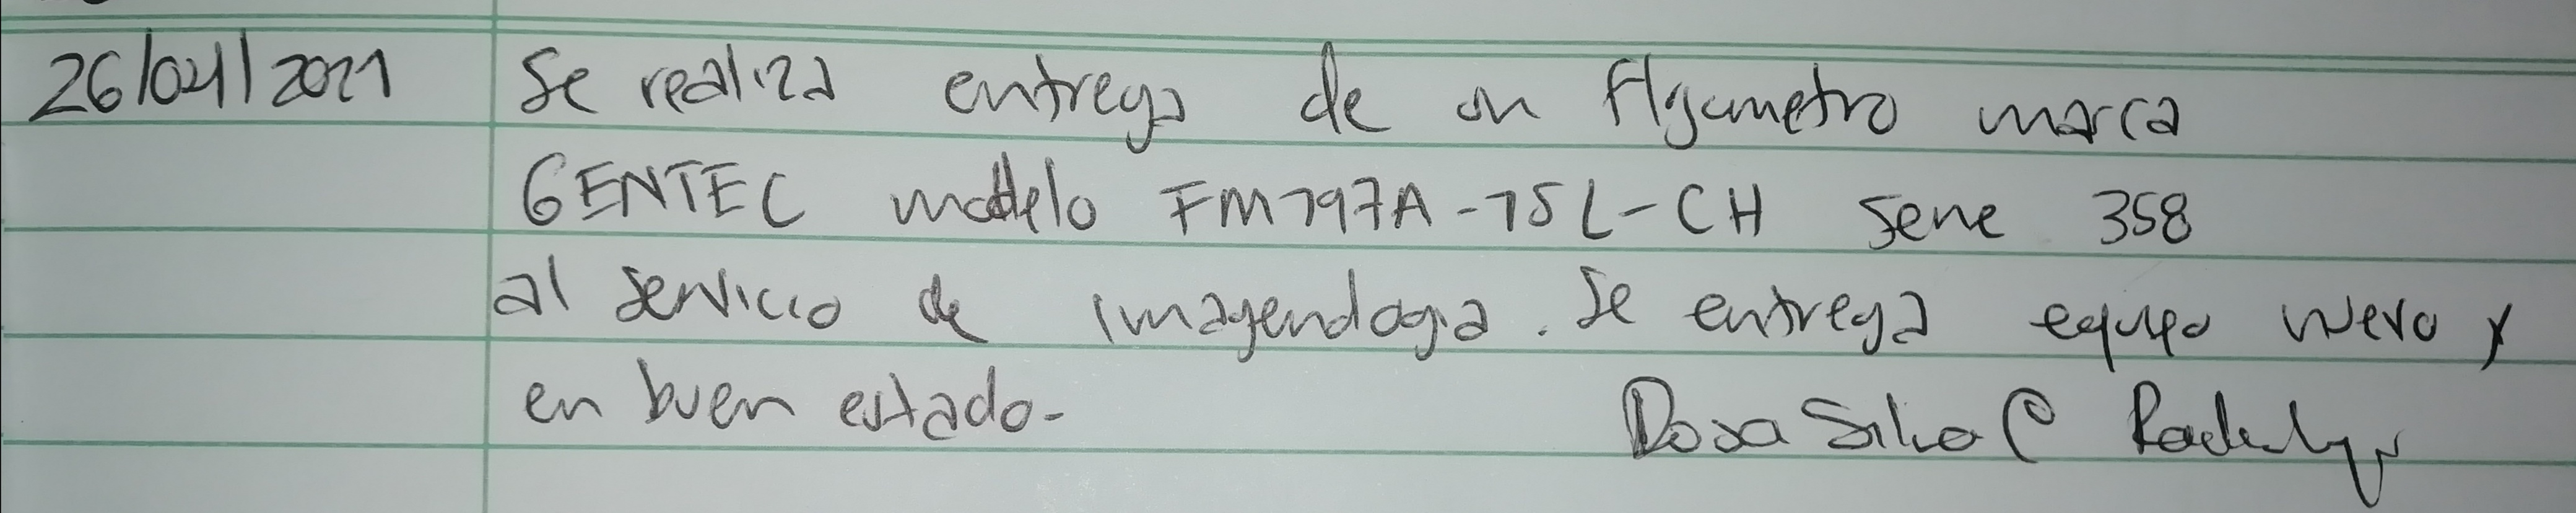 26/04/2021 Se realiza entrega de un flujometro marca
GENTEC modelo FM797A-15L-CH serie 358
al servicio de imagendogia. Se entrega equipo nuevo y
en buen estado- Rosa Silva C